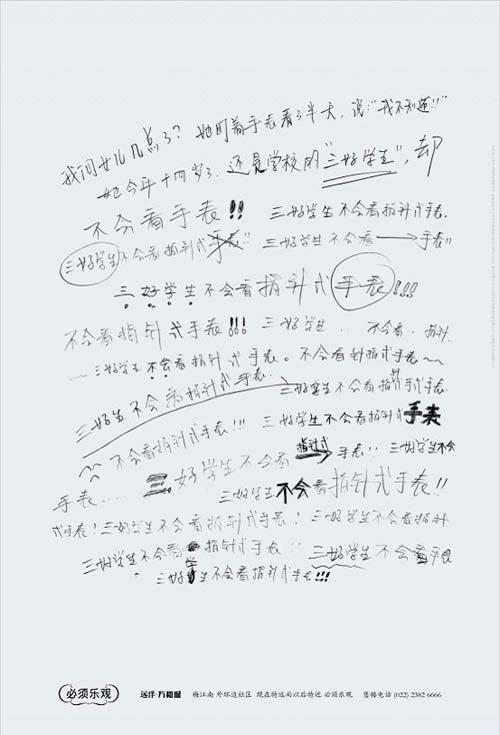 我问女儿几点了？她盯着手表看了半天，说：“我不知道!!”
她今年十四岁了，还是学校的“三好学生”，却
不会看手表!! 三好学生不会看指针式手表.
三好学生不会看指针式手表!! 三好学生不会看→手表!!
三好学生不会看指针式手表!!!
不会看指针式手表!!! 三好学生.. 不会看.. 指针.
~三好学生不会看指针式手表。不会看针指式手表~~
三好学生不会看指针式手表. 三好学生不会看指针式手表.
三好生不会看指针式手表!!! 三好学生不会看指针式手表
不会看指针式手表!!! 三好学生不会看指针式手表!! 三好学生不会
手表.... 三好学生不会看指针式手表!!
式手表!三好学生不会看指针式手表! 三好学生不会看指针
三好学生不会看指针式手表!! 三好学生不会看手表
三好学生不会看指针式手表!!!
必须乐观 远洋·万和城 梅江南 外环边社区 现在特远而以后特近 必须乐观 售楼电话 (022) 2382 6666